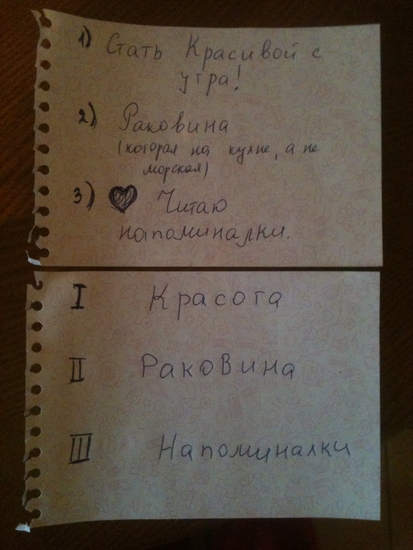 1) Стать Красивой с
утра!
2) Раковина
(которая на кухне, а не
морская)
3) ♥ Читаю
напоминалки.
I Красота
II Раковина
III Напоминалки